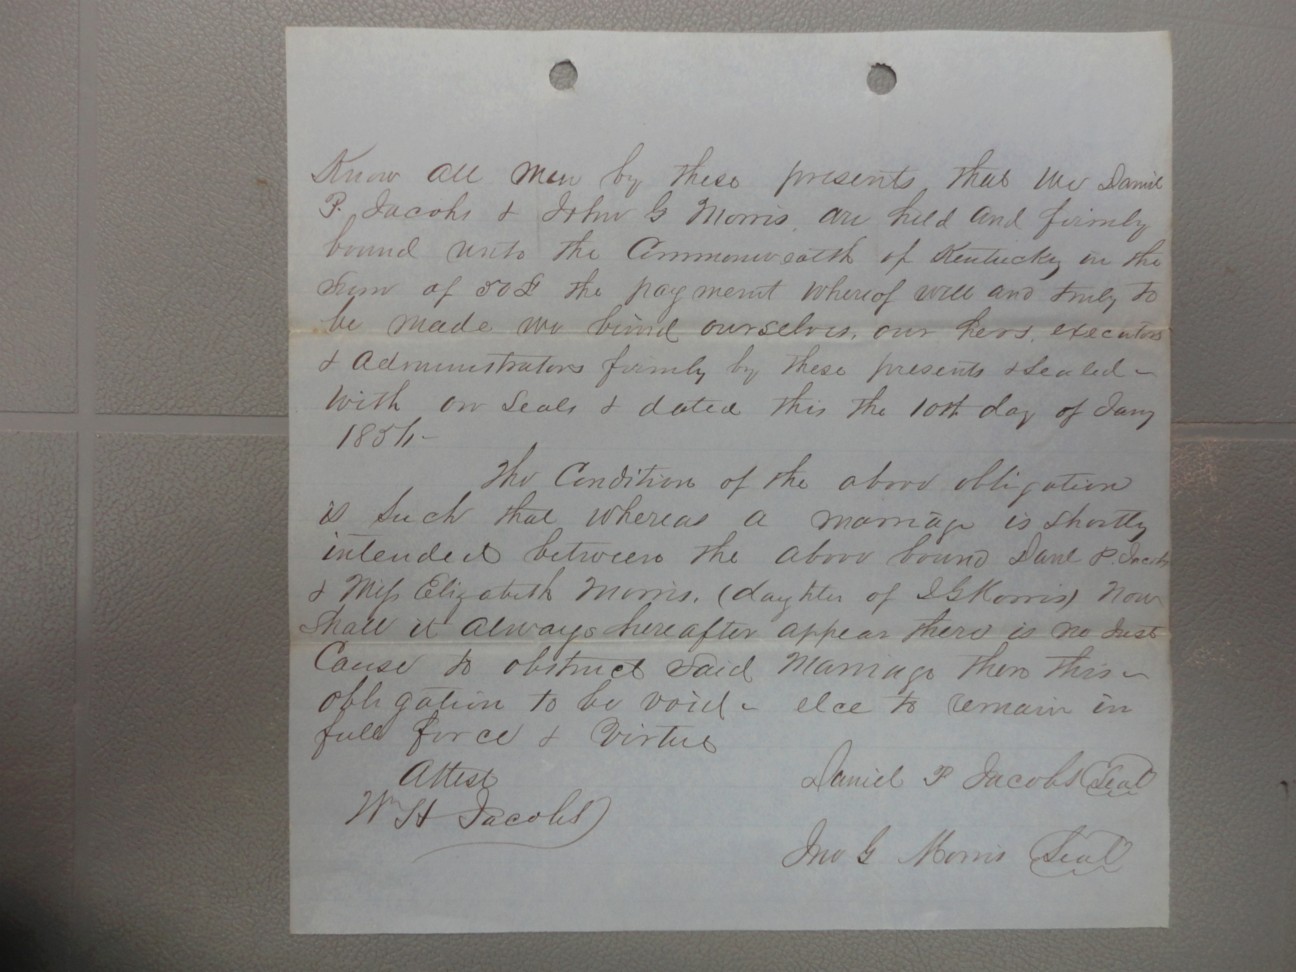 Know all Men by these presents that We Daniel
P. Jacobs & John G Morris, are held and firmly
bound unto the Commonwealth of Kentucky in the
Sum of 50£ the payment whereof will and truly to
be made we bind ourselves, our heirs, executors
& administrators firmly by these presents & sealed -
With our Seals & dated this the 10th day of Jany
The Condition of the above obligation
is Such that whereas a marriage is shortly
intended between the above bound Danl P. Jacobs
& Miss Elizabeth Morris, (daughter of J G Morris) Now
Shall it always hereafter appear there is no Just
Cause to obstruct said Marriage then this -
obligation to be void - else to remain in
full force & Virtue
Attest
Wm H Jacobs
Daniel P Jacobs Seal
Jno G Morris Seal